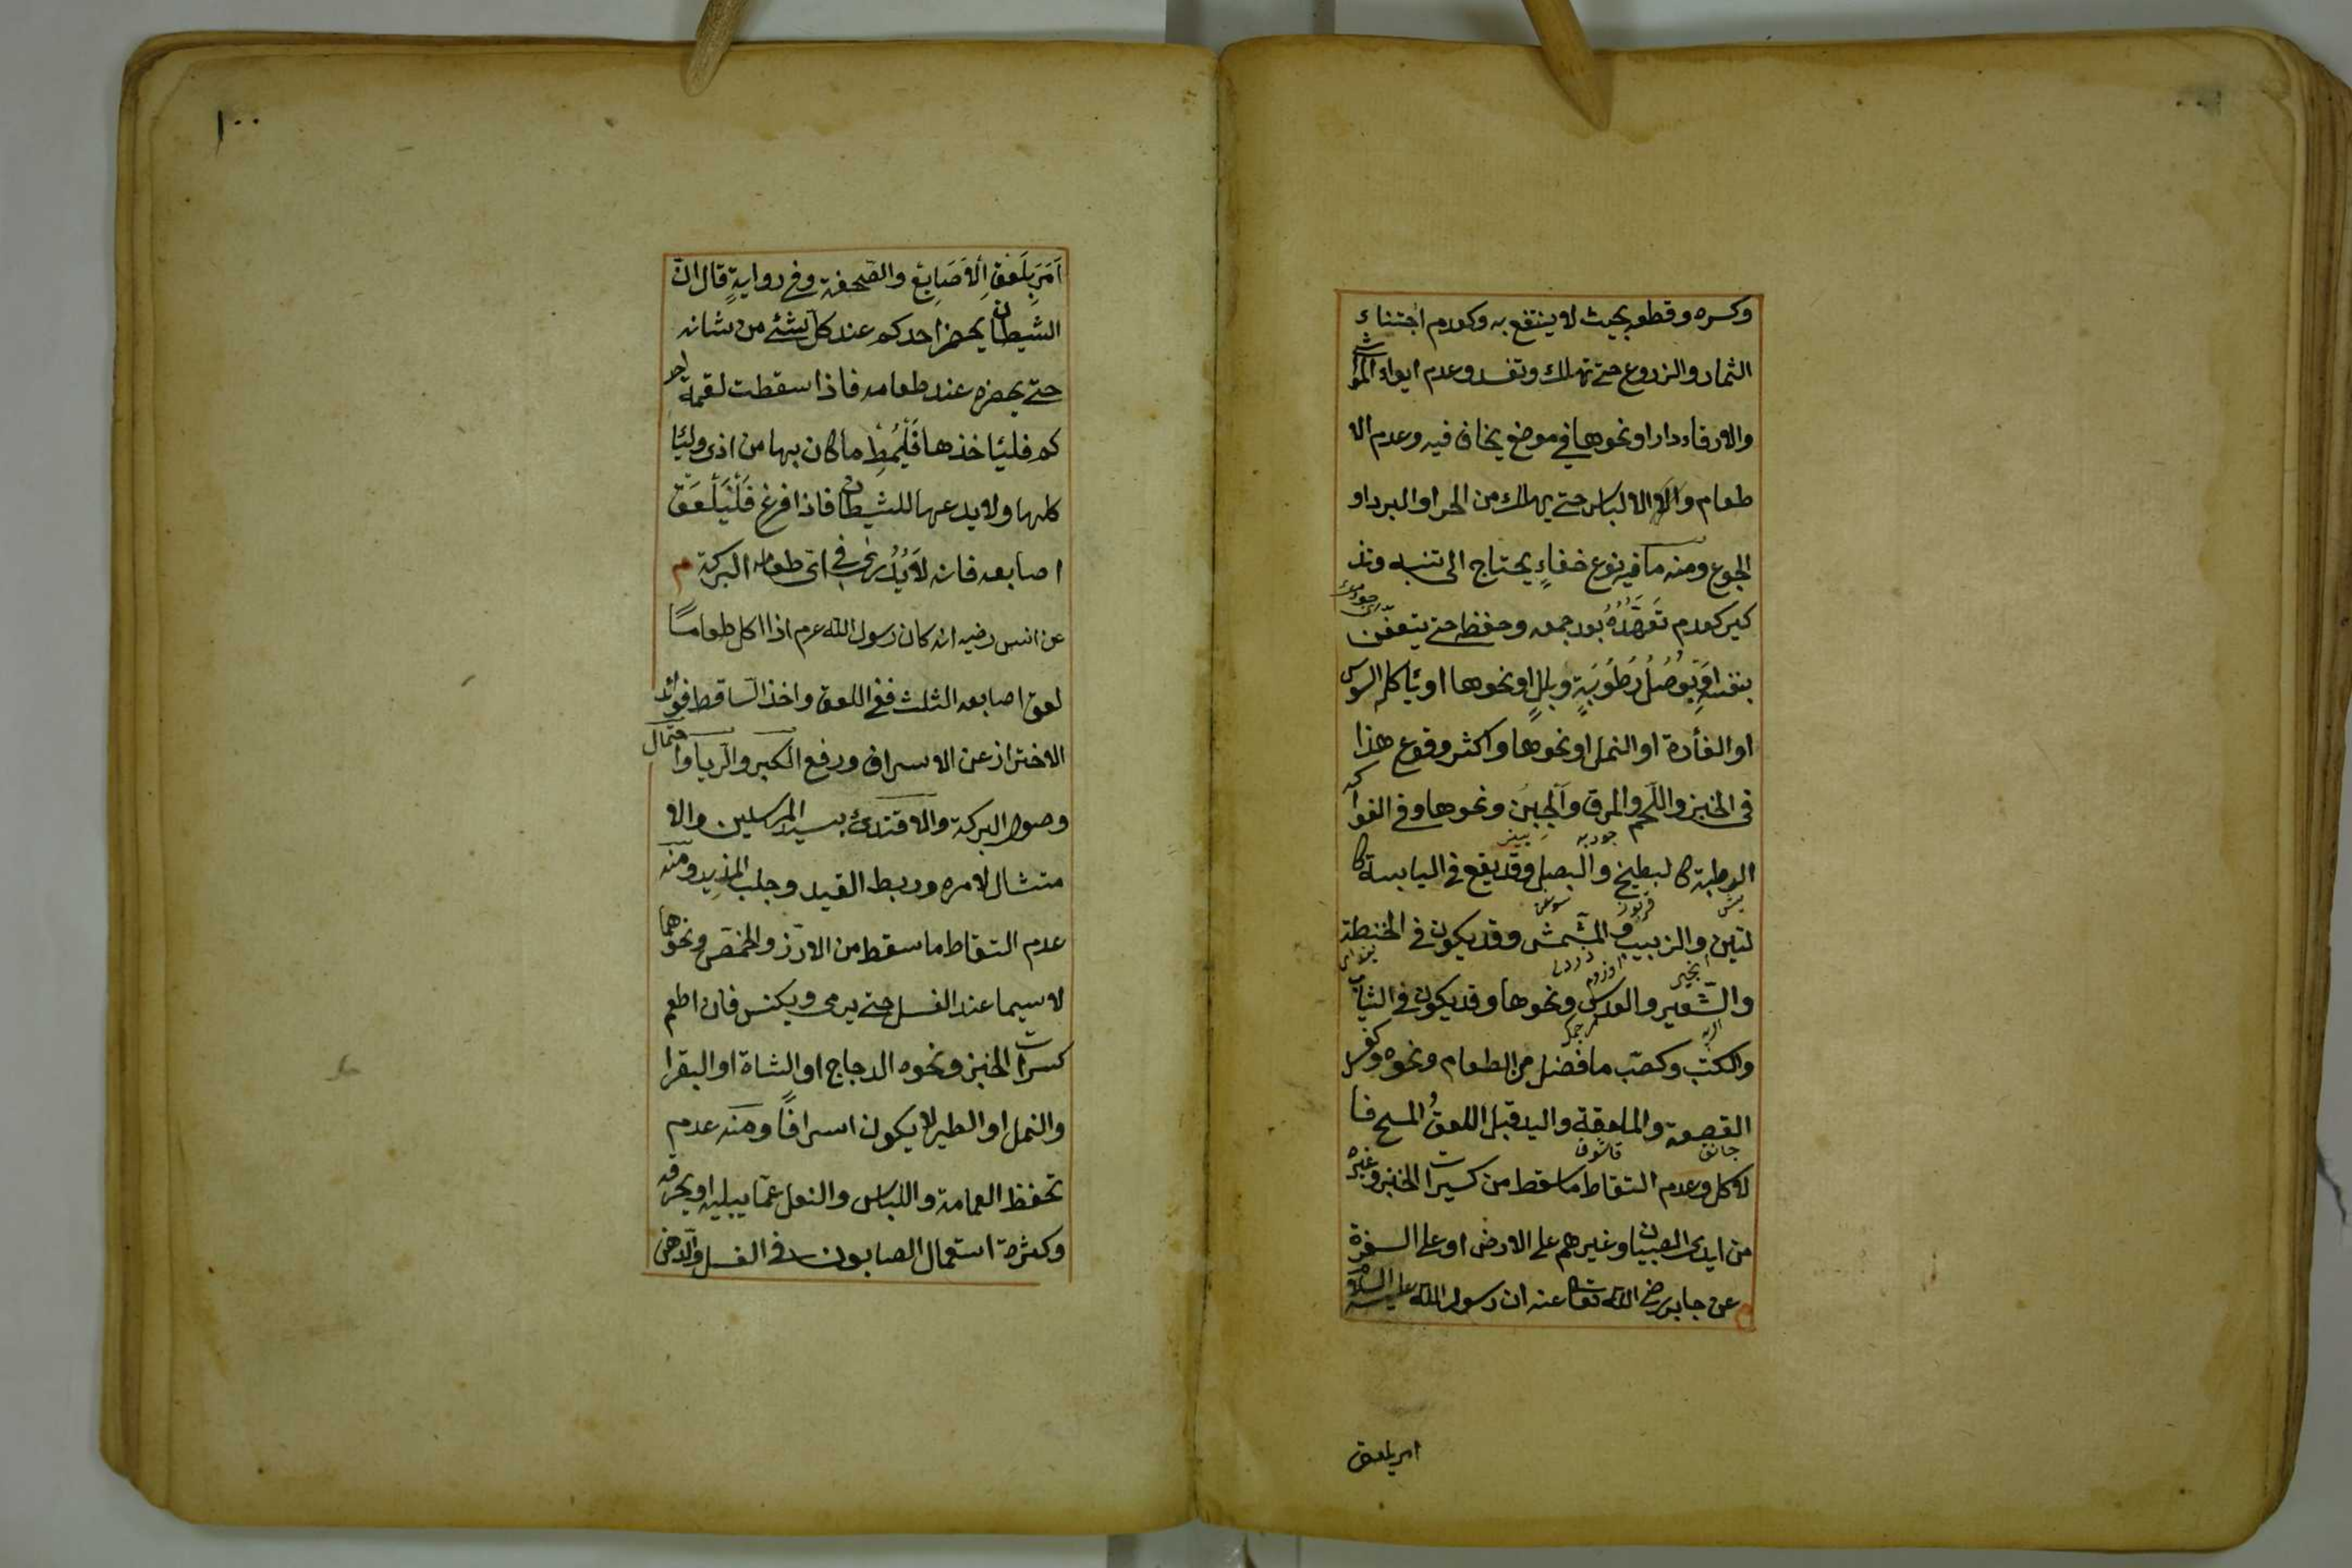 وكسره وقطعه بحيث لا ينتفع به وكعدم اجتناء
الثمار والزروع حتى تهلك وتفسد وعدم ايواء المواشي
والارقاء دارا ونحوها في موضع يخاف فيه وعدم الا
طعام والالباس حتى يهلك من الحر او البرد او
الجوع ومنه ما فيه نوع خفاء يحتاج الى تنبيه وتذ
كير كعدم تَعَهُّدُهُ بعد جمعه وحفظه حتى يتعفّن
بنفسه او بِوُصُلُ رُطُوبَةٍ وبللٍ او نحوها او ياكله السوس
او الفأرة او النمل او نحوها واكثر وقوع هذا
فى الخبز واللّحم والمرق والجبن ونحوها وفى الفواكه
الرطبة كالبطيخ والبصل وقد يقع فى اليابسة كا
لتين والزبيب والمشّمش وقد يكون فى الحنطة
والشّعير والعدس ونحوها وقد يكون فى الثياب
والكتب وكصبّ ما فضل من الطعام ونحوه وكغسل
القصعة والملعقة واليد قبل اللعق والمسح فا
لاكل وعدم التقاط ما سقط من كسيرات الخبز وغيره
من ايدى الصبيان وغيرهم على الارض او على السفرة
م عن جابر رضى الله تعالى عنه ان رسول الله عليه السلام
امر بلعق
١٠٠
اَمَرَ بِلَعْقِ الاَصَابِعِ والصّحفة وفي روايةٍ قال انّ
الشيطان يحضر احدكم عند كل شئ من شانه
حتى يحضره عند طعامه فاذا سقطت لقمة احد
كم فليأخذها فَلْيُمِطْ ما كان بها من اذى وليأ
كلها ولا يدعها للشيطان فاذا فرغ فَلْيَلْعَقْ
اصابعه فانه لا يَدْرِى فى اىّ طعامه البركة م
عن انس رضيه انه كان رسول الله عرم اذا اكل طعامًا
لعق اصابعه الثلث ففى اللعق واخذ السّاقط فوائد
الاحتراز عن الاسراف ورفع الكبر والرياء واحتمال
وصول البركة والاقتدئ بسيد المرسلين والا
متثال لامره وربط القيد وجلب المزيد ومنه
عدم التقاط ما سقط من الارز والحمّص ونحوهما
لا سيما عند الغسل حتى يرمى ويكنس فان اطعم
كسرات الخبز ونحوه الدجاج او الشاة او البقرا
والنمل او الطير لا يكون اسرافًا ومنه عدم
تحفظ العمامة واللباس والنعل عمّا يبليه او يحرقه
وكثرة استعمال الصابون فى الغسل والدّهن